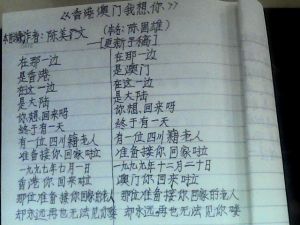 《香港澳门我想你》
本歌词作者:陈美 文 (本名:陈国雄)
—[更新手稿]
在那一边 在那一边
是香港 是澳门
在这一边 在这一边
是大陆 是大陆
你想回来呀 你想回来呀
终于有一天 终于有一天
有一位四川籍老人 有一位四川籍老人
准备接你回家啦 准备接你回家啦
一九九七年七月一日 一九九九年十二月二十日
香港你回来啦 澳门你回来啦
那位准备接你回家的老人 那位准备接你回家的老人
却永远再也无法见你喽 却永远再也无法见你喽